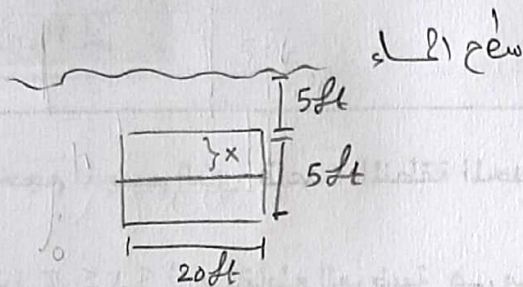 سطح الماء
5ft
x
5ft
20ft